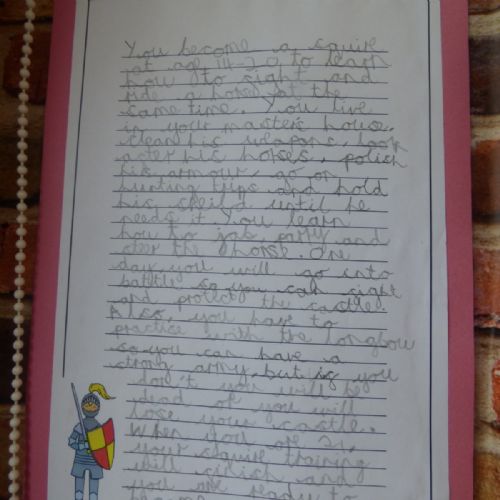 You become a squire
at age 14-20 to learn
how to fight and
ride a horse at the
same time. You live
in your master's house,
clean his weapons, look
after his horses, polish
his armour, go on
hunting trips and hold
his sheild until he
needs it. You learn
how to jab, parry and
steer the horse. One
day you will go into
battle so you can fight
and protect the castle.
Also, you have to
practice with the longbow
so you can have a
strong army but if you
don't you will be
dead or you will
lose your castle.
When you are 21,
your squire training
will finish and
you are ready to